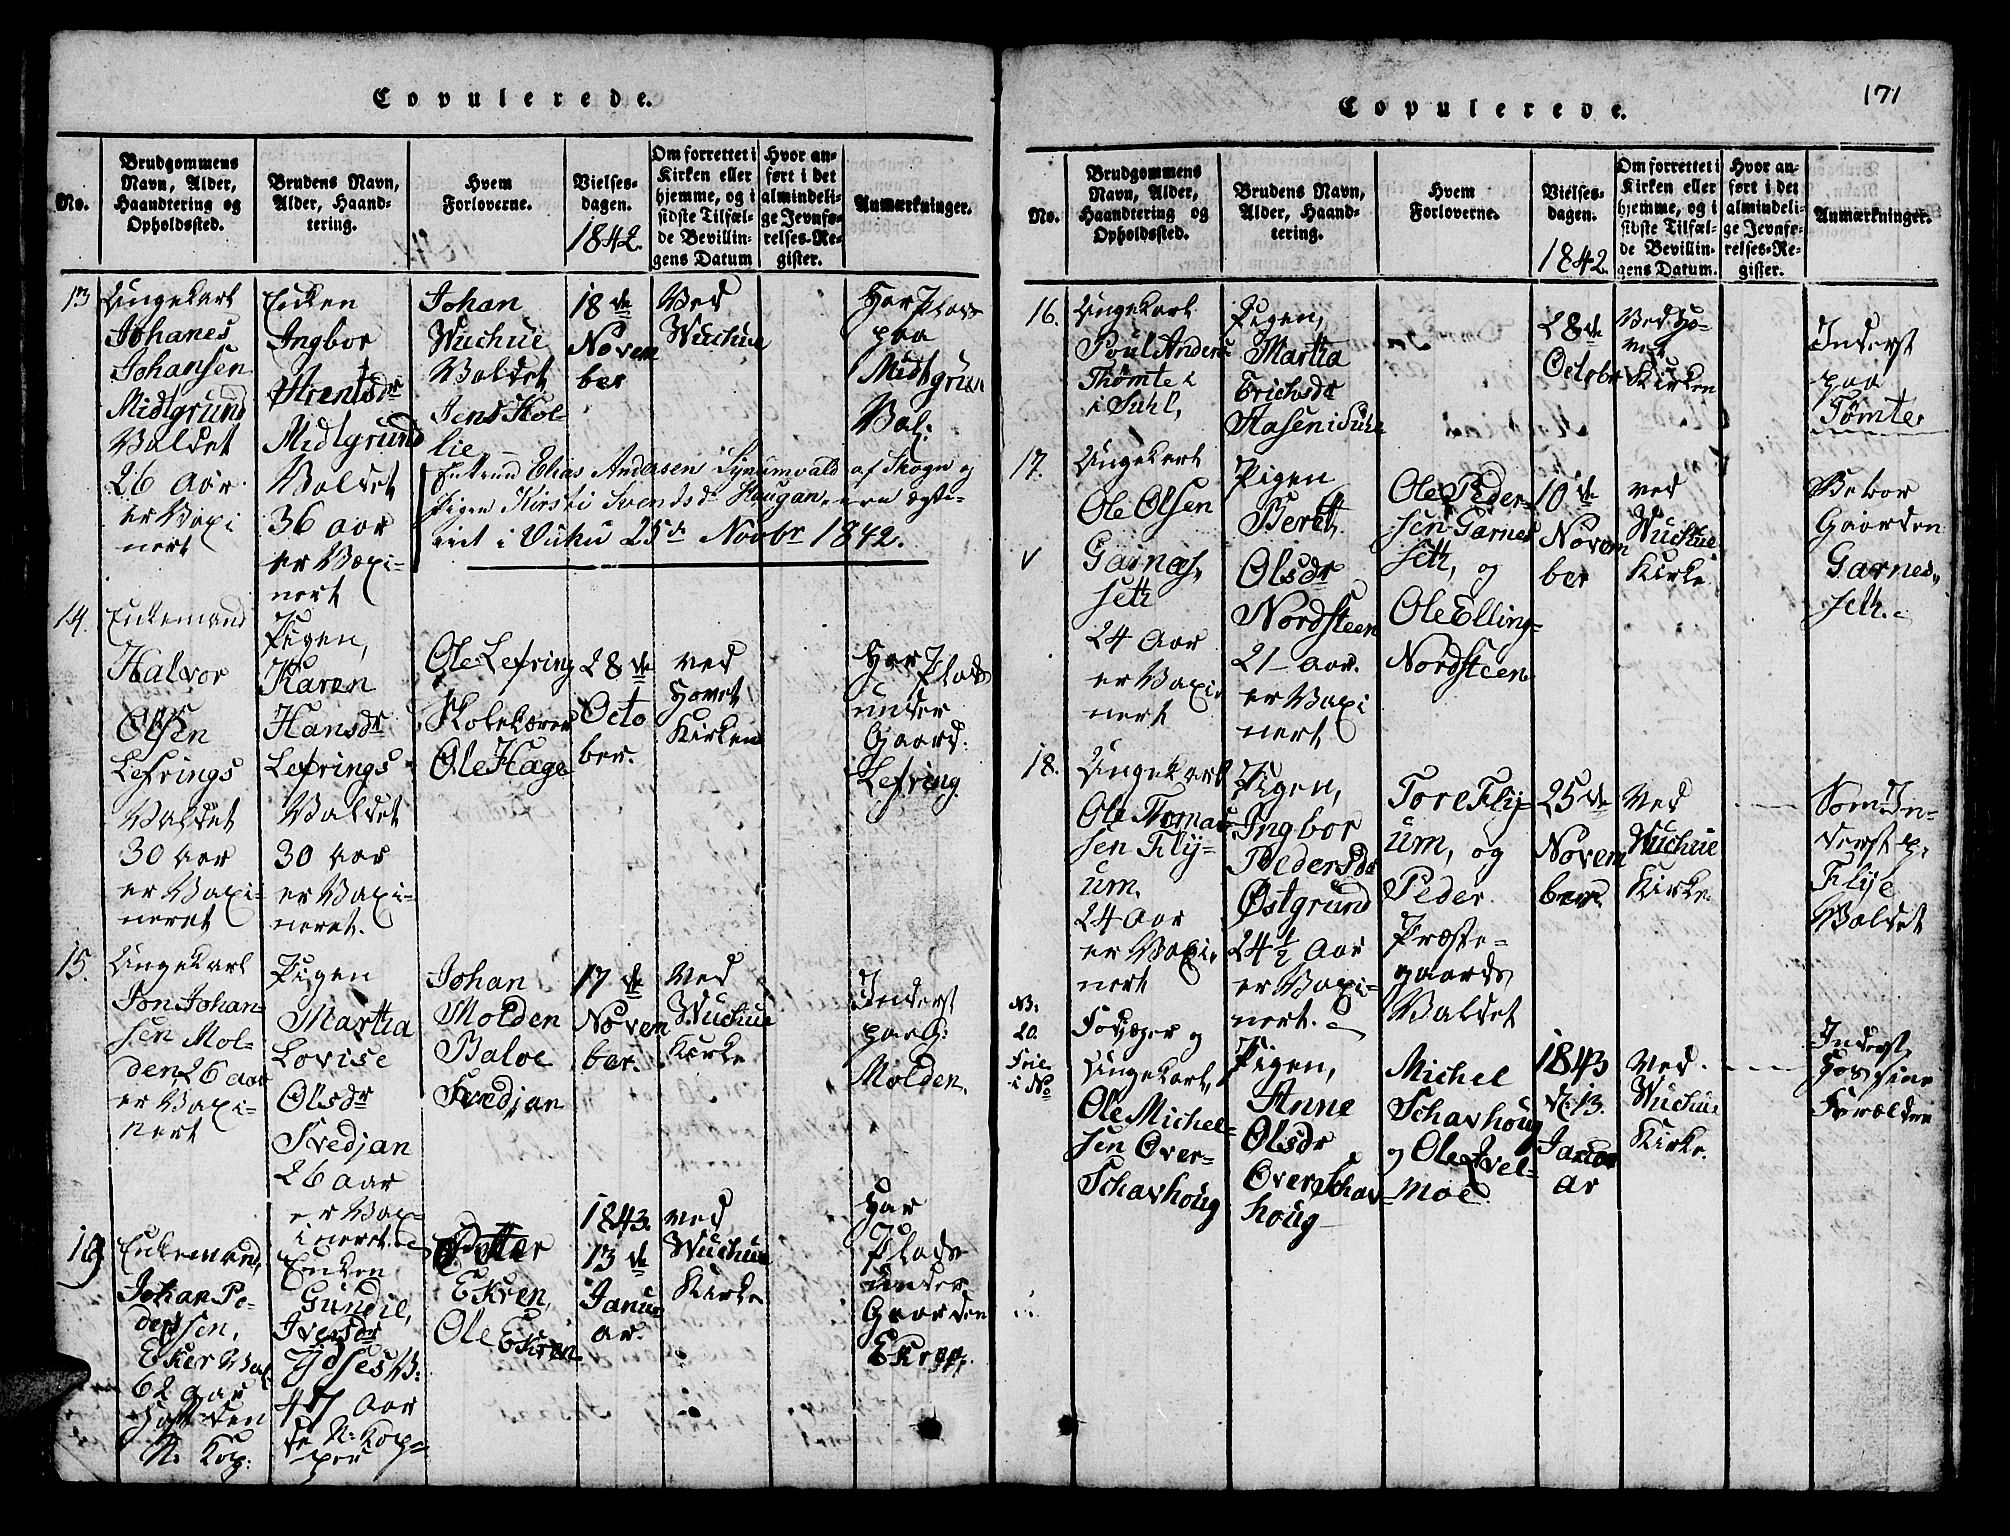 Copulerede.
No.
Brudgommens
Navn, Alder,
Haandtering og
Opholdssted.
Brudens Navn,
Alder, Haand-
tering.
Hvem
Forloverne.
Vielses-
dagen.
1842.
Om forrettet i
Kirken eller
hjemme, og i
sidste Tilfæl-
de Bevillin-
gens Datum
Hvor an-
ført i det
almindeli-
ge Jevnfø-
relses-Re-
gister.
Anmærkninger.
13
Ungekarl
Johanes
Johansen
Midtgrund
Valdet
26 Aar
er Vaxi
nert
Enken
Ingbor
Arentsdr
Midtgrund
Valdet
36 aar
er Vaxi-
nert
Johan
Wuchue
Valdet
Jens Kol-
lie
18de
Novem
ber
Ved
Wuchue
Har Plads
paa
Midtgrun
Val:
Enkem̄d Elias Andersen Synumvald af Skogn og
Pigen Kirsti Svendsdr Haugan, ere ægte-
viet i Vuku 25de Novbr 1842.
14.
Enkemand
Halvor
Olsen
Lefrings
Valdet
30 Aar
er Vaxi-
neret
Pigen,
Karen
Hansdr
Lefrings
Valdet
30 Aar
er Vaxi-
neret.
Ole Lefring
Ole Hage
28de
Octo
ber.
ved
Hovet
Kirken
Har Plads
under
Gaard:
Lefring
15.
Ungekarl
Jon Johan-
sen Mol-
den, 26 aar
er Vaxi-
nert
Pigen
Martha
Lovise
Olsdr
Svedjan
26 aar
er Vax-
ineret.
Johan
Molden
Svedjan
17de
Novem
ber.
Ved
Wuchue
Kirke
Inderst
paa G:
Molden.
19
Enkemand,
Johan Pe-
dersen,
Eker Val
62 aar
Haft den
N. Kop:
Enken
Gundil,
Iversdr
47 Aar
de N: Kop-
per
Petter
Ekren,
Ole Ekren
1843.
13de
Janu-
ar.
ved
Wuchue
Kirke
Har
Plads
under
Gaarden
Ekren.
Copulerede.
171
No.
Brudgommens
Navn, Alder,
Haandtering og
Opholdssted.
Brudens Navn,
Alder, Haand-
tering.
Hvem
Forloverne.
Vielses-
dagen.
1842.
Om forrettet i
Kirken eller
hjemme, og i
sidste Tilfæl-
de Bevillin-
gens Datum.
Hvor an-
ført i det
almindeli-
ge Jevnfø-
relses-Re-
gister.
Anmærkninger.
16.
Ungekarl
Poul Anders
Tømte
i Suhl,
Pigen,
Martha
Erichsdr
Aasen i Suhl
28de
Octobr
Ved Ho-
vet
Kirken
Inderst
paa
Tømte
17.
Ungekarl
Ole Olsen
Garnes,
seth
24 Aar
er Vaxi-
nert
Pigen
Berit,
Olsdr
Nordsteen
21 aar.
er Vaxi
nert,
Ole Peder-
sen Garnes
seth, og
Ole Elling-
Nordsteen
10de
Novem
ber
ved
Wuchue
Kirke
Bebor
Gaarden
Garnes,,
seth.
18.
Ungekarl
Ole Tomas-
sen Flÿ-
um,
24 Aar
er Vaxi,
nert
Pigen,
Ingbor
Pedersdr
Østgrund
24½ Aar
er Vaxi-
nert.
Tore Flÿ-
um, og
Peder
Præste-
gaards
Valdet
25de
Novem
ber.
Ved
Wuchue
Kirke.
Som In-
derst p.
Flÿe
Valdet
N:
20.
Ungekarl,
Ole Michel-
sen Over-
Schavhoug
Pigen,
Anne
Olsdr
Over Schav-
houg
Michel
Schavhoug
og Ole Qvel-
moe.
1843
d: 13.
Janu
ar
Ved
Wuchue
Kirke.
Inderst,
Hos sine
Forældre